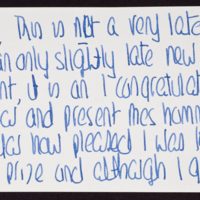 This is not a very late
an only slightly late new
nt, it is an I congratulat
and present mrs hamm
how pleased I was
prize and although I a